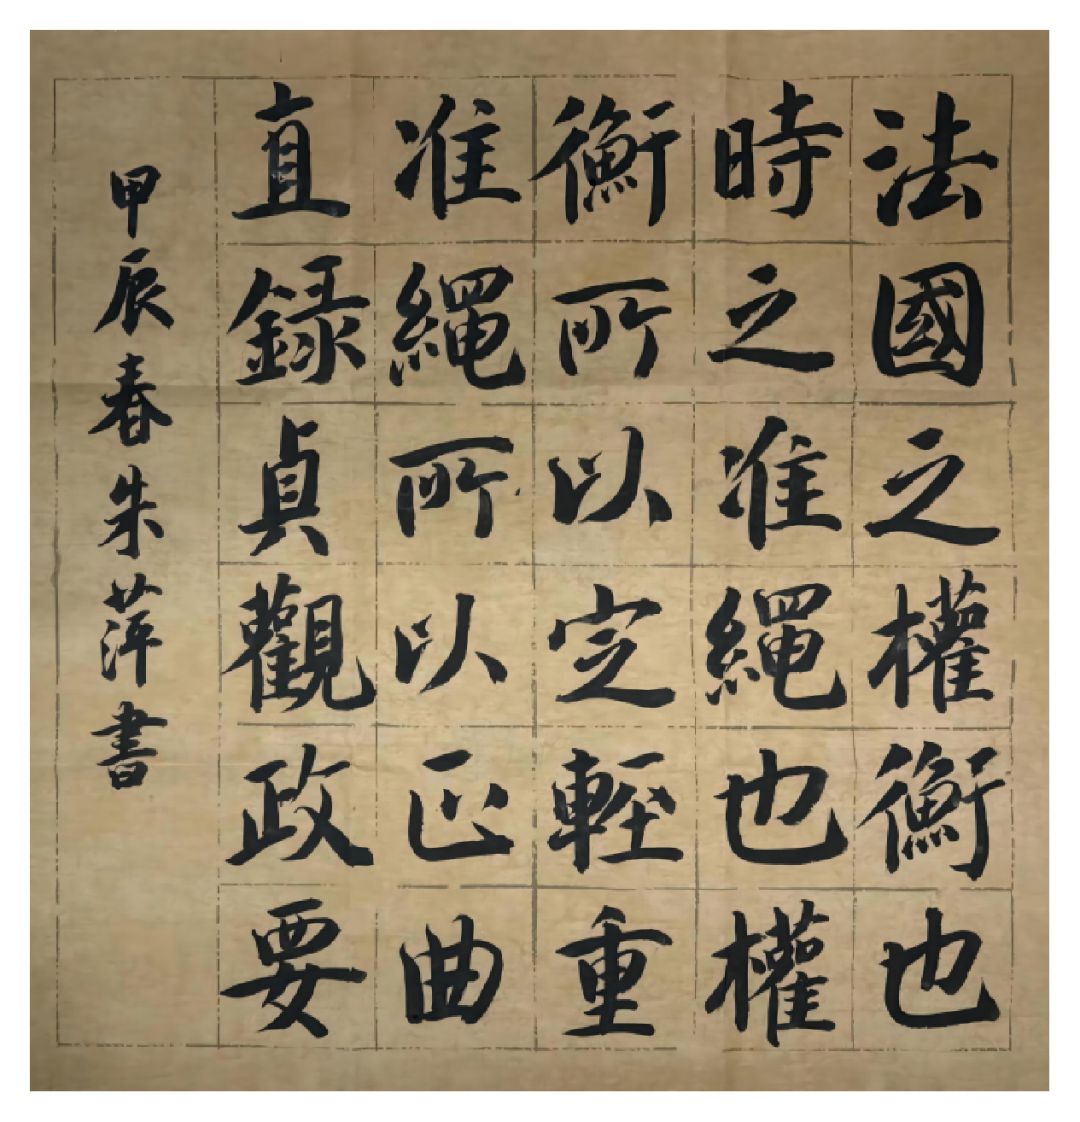 法國之權衡也
時之准繩也權
衡所以定輕重
准繩所以正曲
直録貞觀政要
甲辰春朱萍書